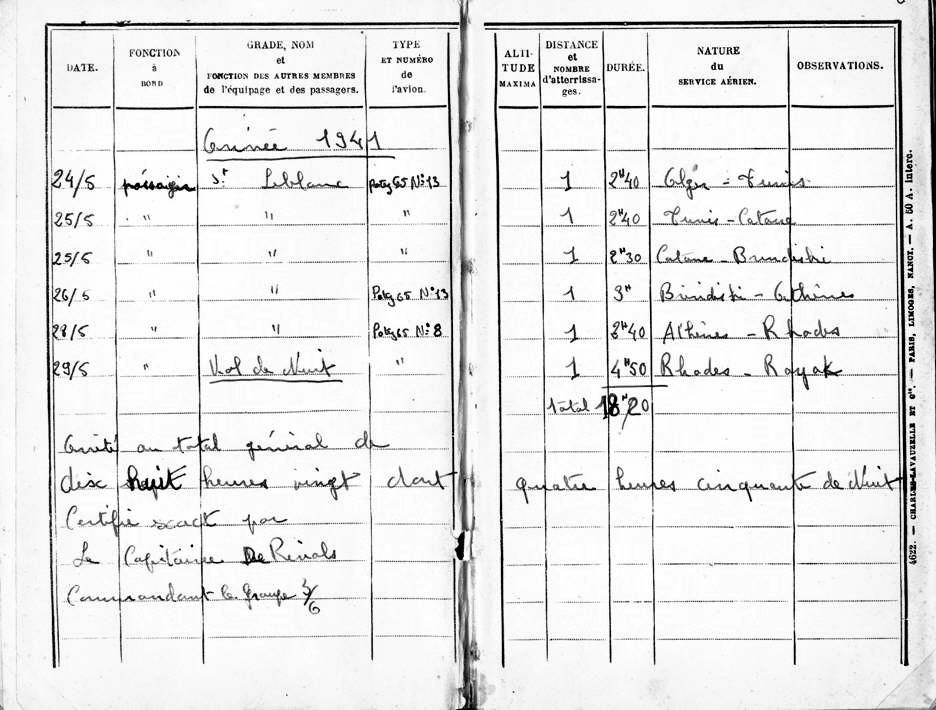 DATE. FONCTION à BORD GRADE, NOM et FONCTION DES AUTRES MEMBRES de l'équipage et des passagers. TYPE ET NUMÉRO de l'avion. ALTI-TUDE MAXIMA DISTANCE et NOMBRE d'atterrissa-ges. DURÉE. NATURE du SERVICE AÉRIEN. OBSERVATIONS.
Année 1941
24/5 passager Sᵗ Leblanc Potez 65 N° 13 1 2ᴴ40 Alger - Tunis
25/5 " " " 1 2ᴴ40 Tunis - Catane
25/5 " " " 1 2ᴴ30 Catane - Brindishi
26/5 " " Potez 65 N° 13 1 3ᴴ Brindishi - Athènes
28/5 " " Potez 65 N° 8 1 2ᴴ40 Athènes - Rhodes
29/5 " Vol de Nuit " 1 4ᴴ50 Rhodes - Rayak
Total 18ᴴ20
Arrêté au total général de
dix huit heures vingt dont quatre heures cinquante de Nuit
Certifié exact par
Le Capitaine De Rivals
Commandant le Groupe
4622. — CHARLES-LAVAUZELLE ET Cⁱᵉ. — PARIS, LIMOGES, NANCY. — A. 60 A. Interc.